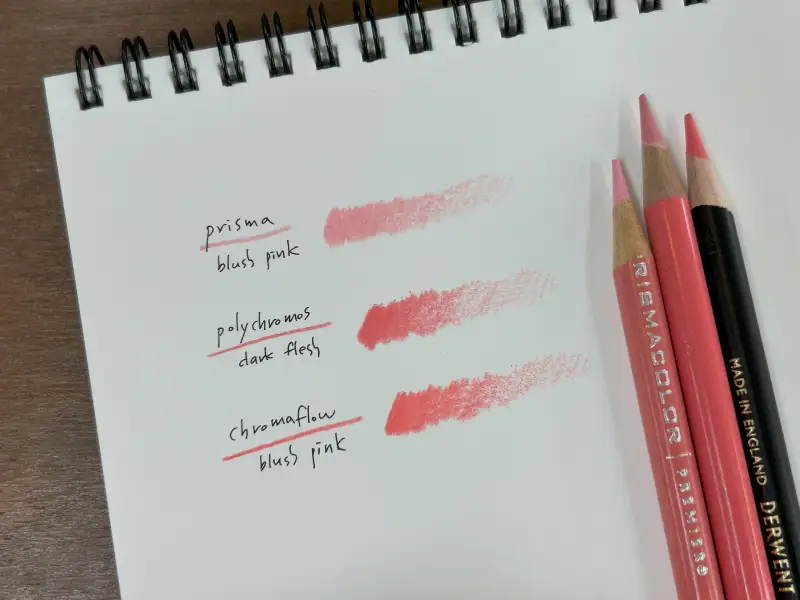 prisma
blush pink
polychromos
dark flesh
chromaflow
blush pink
PRISMACOLOR | PREMIER®
MADE IN ENGLAND DERWENT